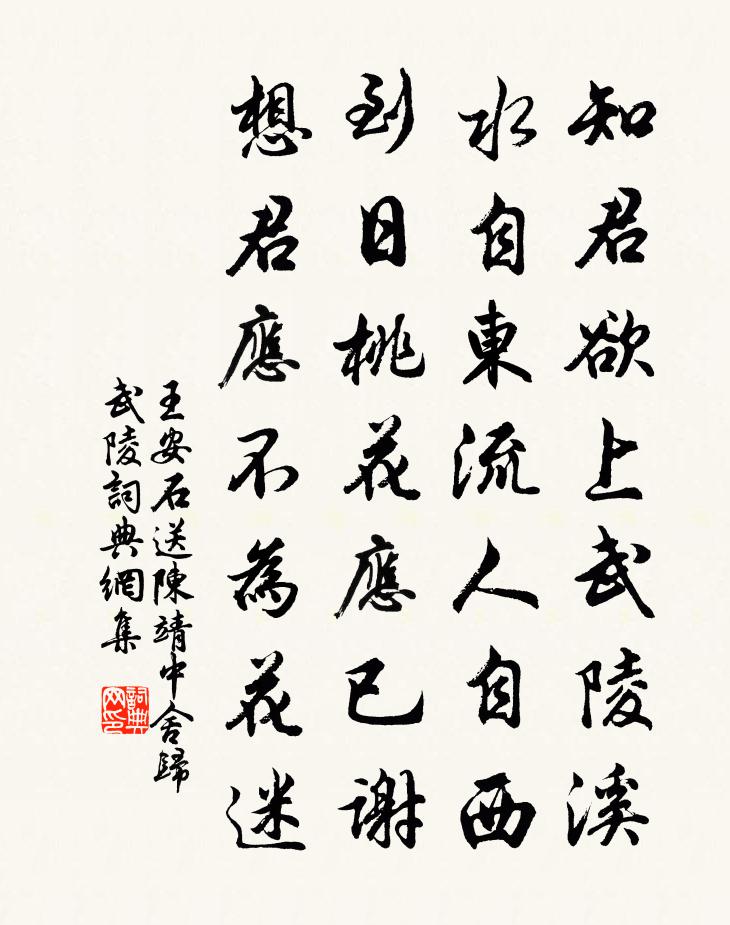 知君欲上武陵溪
水自東流人自西
到日桃花應已謝
想君應不為花迷
王安石送陳靖中舍歸
武陵詞典網集
詞典网印